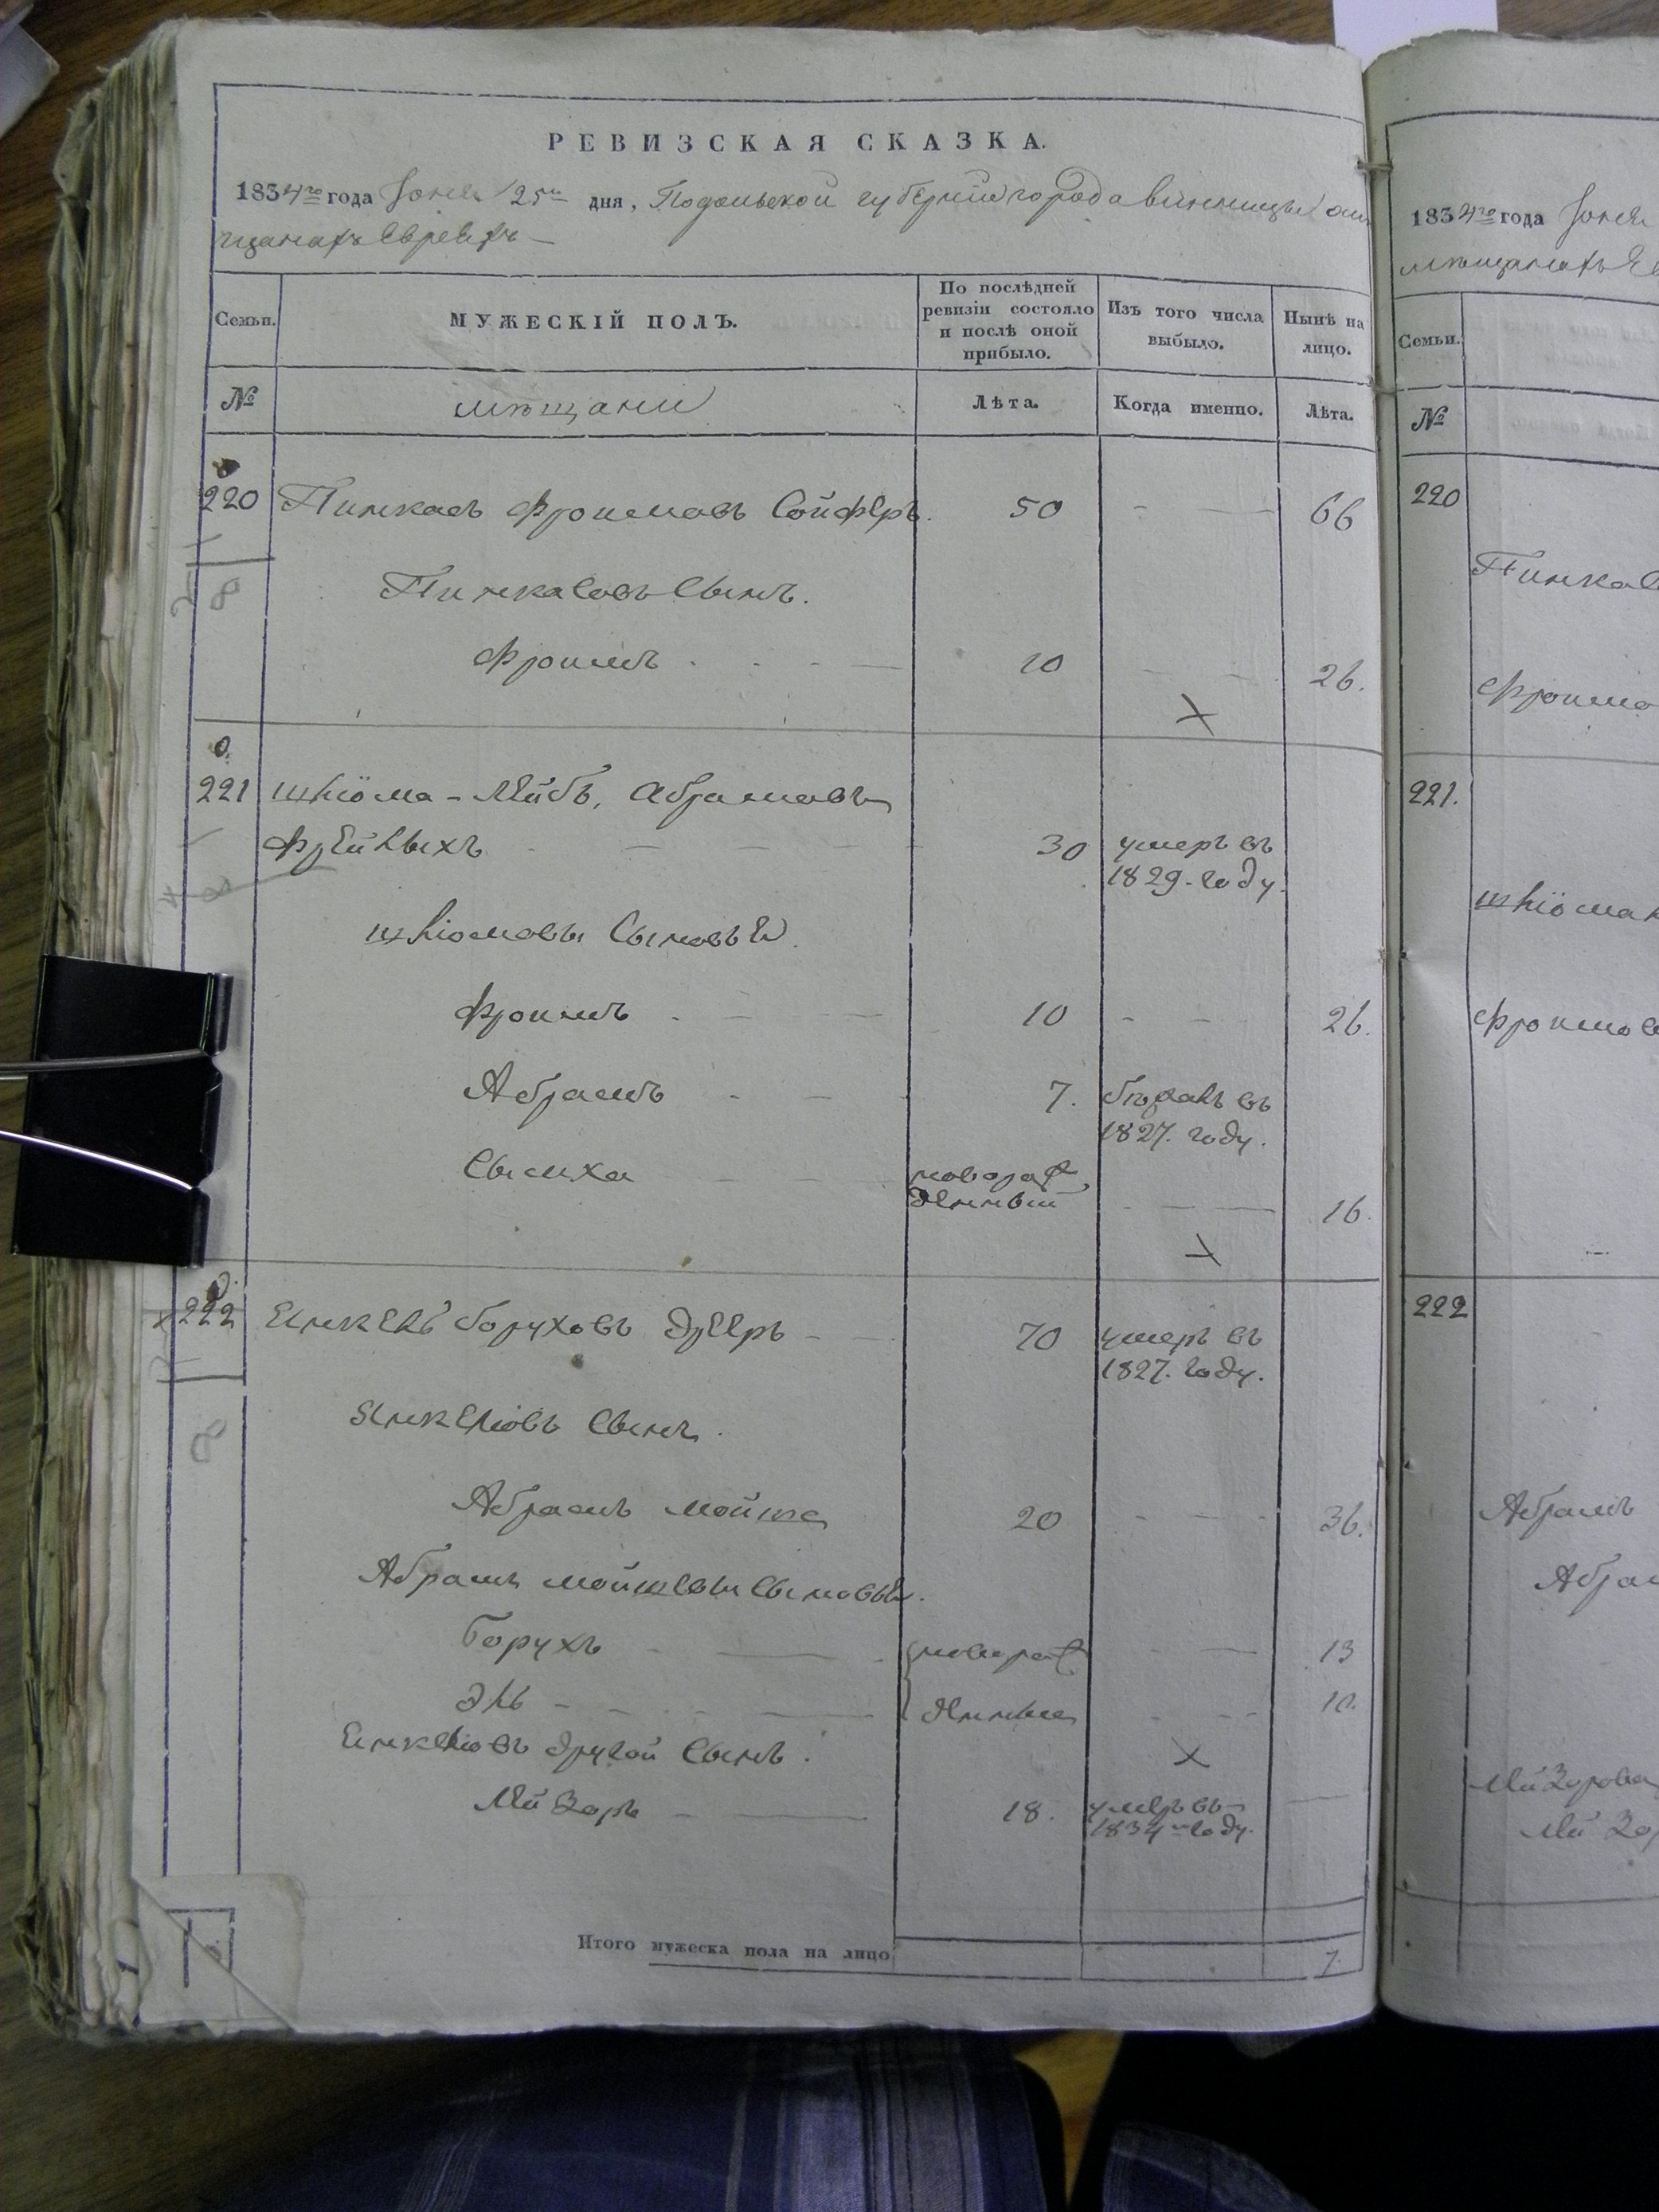 РЕВИЗСКАЯ СКАЗКА.
1834го года Іюня 25го дня, Подольской губерніи города Винницы о мѣ
щанахъ Евреяхъ
Семьи. МУЖЕСКІЙ ПОЛЪ. По послѣдней ревизіи состояло и послѣ оной прибыло. Изъ того числа выбыло. Нынѣ на лицо.
№ мѣщани Лѣта. Когда именно. Лѣта.
220 Пинкасъ Фроимовъ Сойферъ. 50 66
Пинкасовъ Сынъ.
Фроимъ 10 26.
221 Шліома-Лейбъ, Абрамовъ
Фрейлихъ 30 умеръ въ
1829. году.
Шліомовы Сыновьи
Фроимъ 10 26.
Абрамъ 7. бѣжалъ въ
1827. году.
Сымха новорож
денный 16.
222 Янкель Боруховъ 70 умеръ въ
1827. году.
Янкеліовъ Сынъ.
Абрамъ Мойше 20 36.
Абрамъ Мойшевы Сыновьи.
Борухъ новорож 13
Эль денные 10.
Янкеліовъ другой Сынъ.
Лейзоръ 18. умеръ въ
1834м году.
Итого мужеска пола на лицо 7.
1834го года Іюня
мѣщанахъ Е
Семьи.
№
220
Пинкасо
Фроимо
221.
Шліома
Фроимов
222
Абрамъ
Абрам
Лейзорова
Лейзо